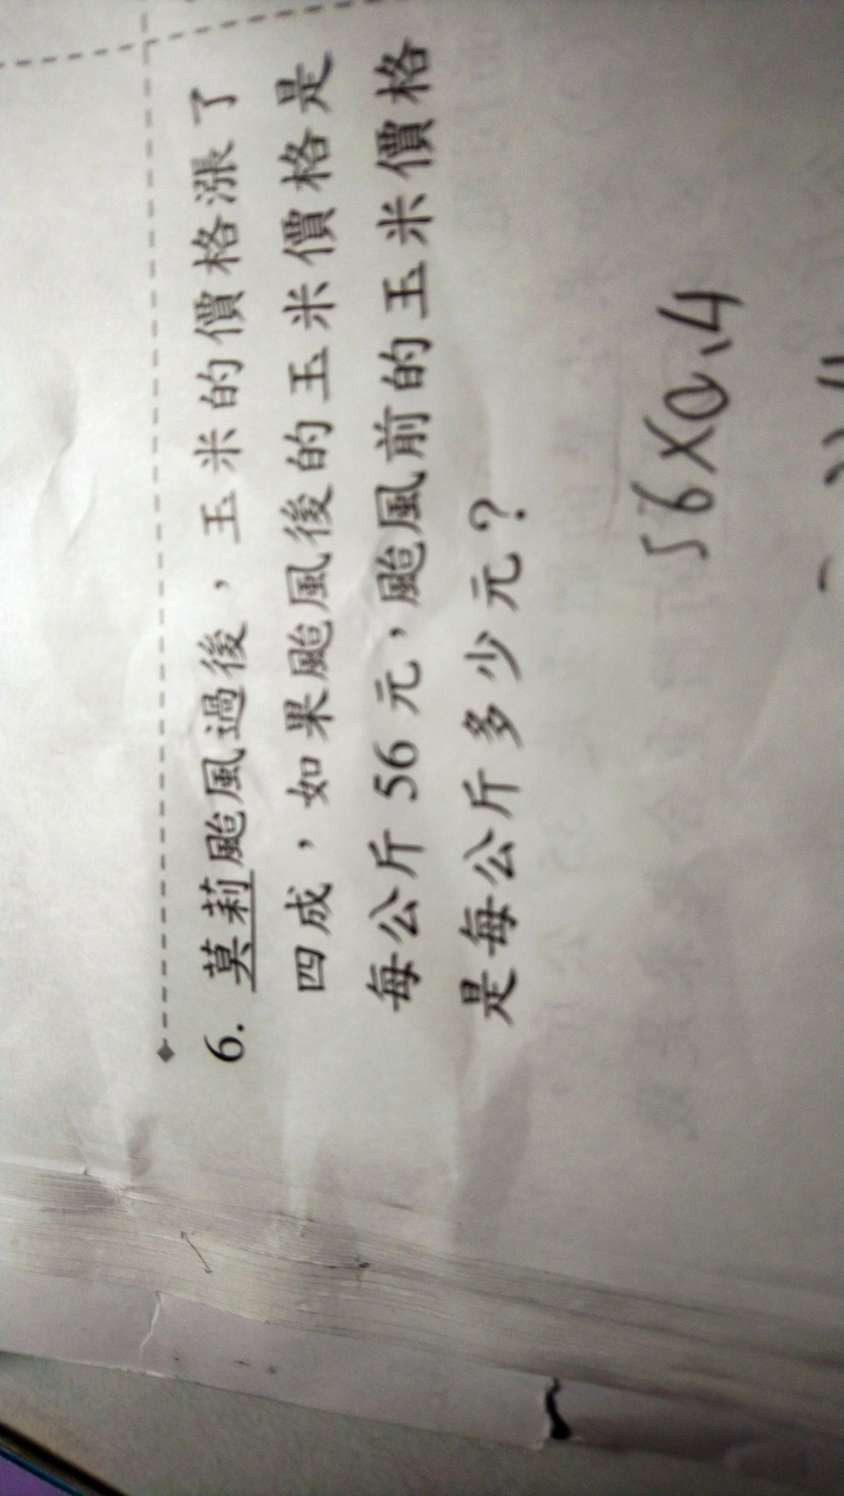 6. 莫莉颱風過後，玉米的價格漲了
四成，如果颱風後的玉米價格是
每公斤 56 元，颱風前的玉米價格
是每公斤多少元？
56×0.4